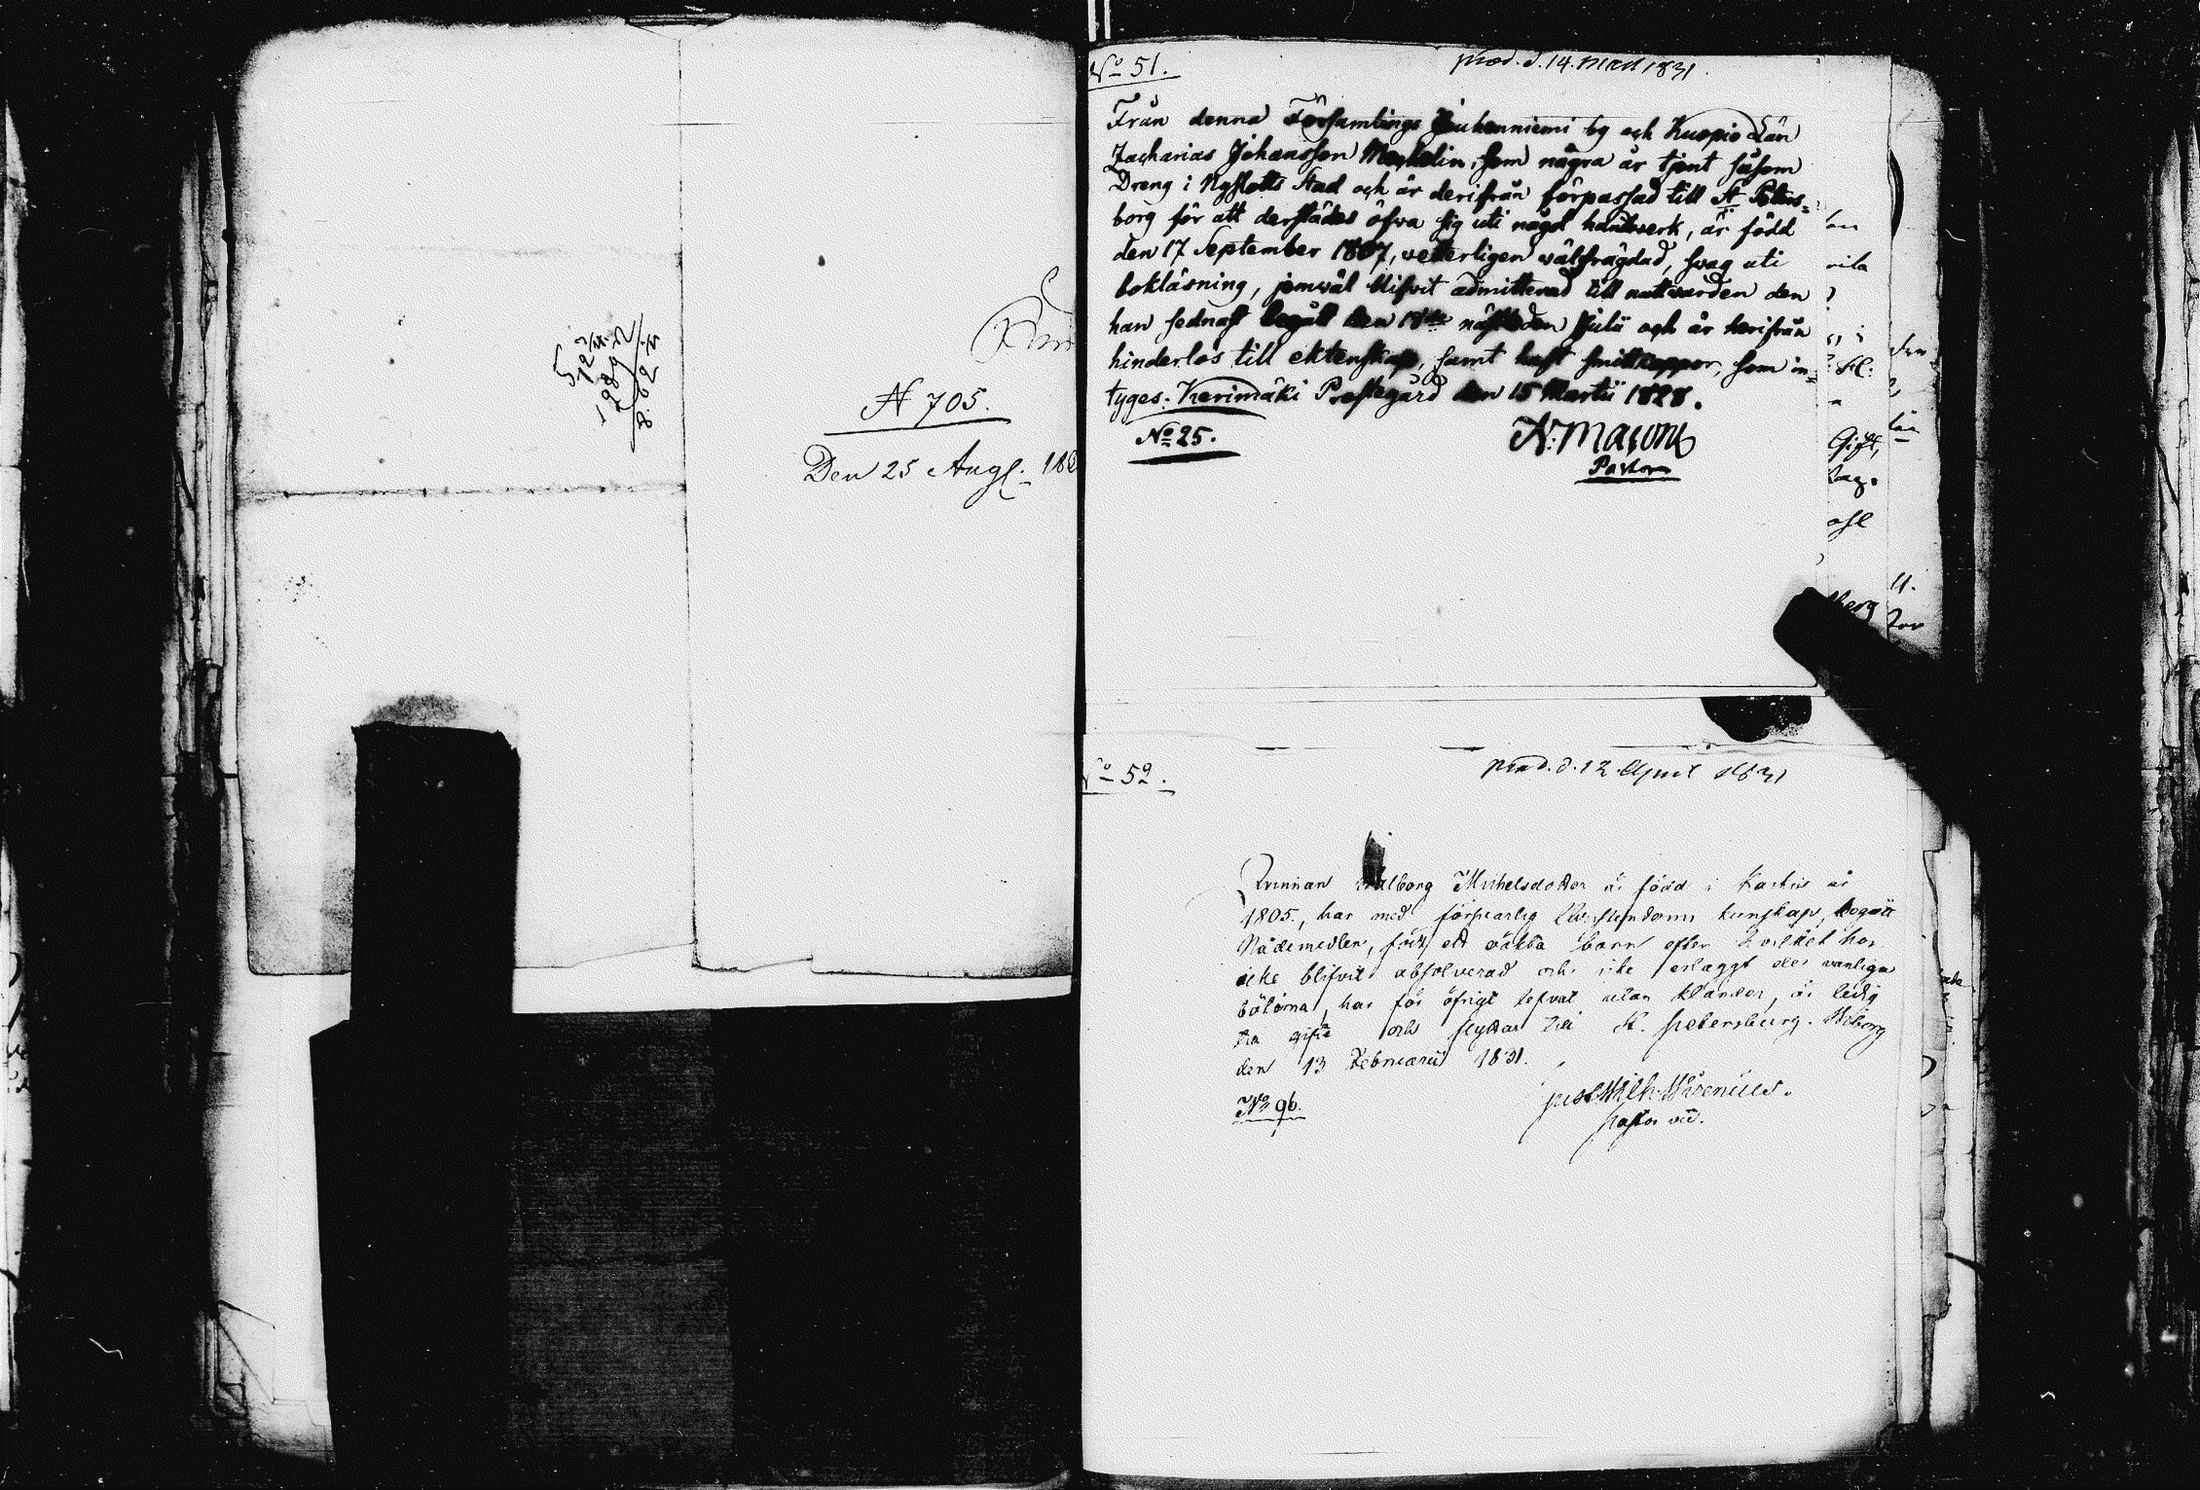 N 705.
Den 25 Augl.
No 51.
prod. d. 14. Mars 1831
Från denna Församlings Juhanniemi by och Kuopio Län
Zacharias Johansson Meghelin, som några år tjent såsom
Dreng i Nyslotts Stad och är derifrån förpassad till St Peters-
borg för att derstädes öfva sig uti något handtwerk, är född
den 17 September 1807, vetterligen välfrägdad, svag uti
bokläsning, jemväl blifvit admitterad till nattvarden den
han sednast begått den 18de nästleden Julii och är herifrån
hinderlös till ektenskap, samt haft smittkoppor, som in-
tyges. Kerimäki Prestegård den 15 Martii 1828.
No 25.
Pastor
No 52.
prod. d. 12. April 1831
Qvinnan Walborg Michelsdotter är född i år
1805, har med försvarlig Christendoms kunskap, begått
Nådemedlen, födt ett oäkta barn efter hvilket hon
icke blifvit absolverad och icke erlaggt de vanliga
böterna, har för öfrigt lefvat utan klander, är ledig
till gifte och flyttar till St. Petersburg. Wiborg
den 13 Februarii 1831.
No 96.
Pastor vic.